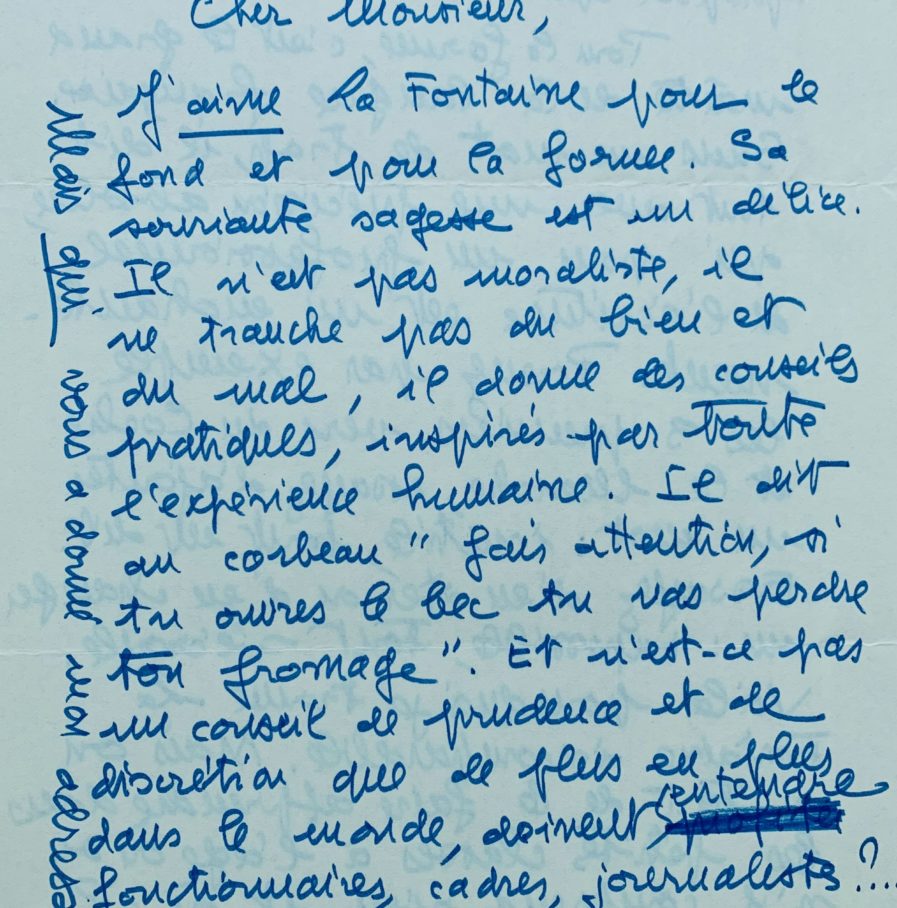 Cher Monsieur,
J'aime La Fontaine pour le
fond et pour la forme. Sa
souriante sagesse est un délice.
Il n'est pas moraliste, il
ne tranche pas du bien et
du mal, il donne des conseils
pratiques, inspirés par toute
l'expérience humaine. Il dit
au corbeau " fais attention, si
tu ouvres le bec tu vas perdre
ton fromage". Et n'est-ce pas
un conseil de prudence et de
discrétion que de plus en plus
dans le monde, doivent entendre
fonctionnaires, cadres, journalistes ?...
Mais qui vous a donné mon adresse